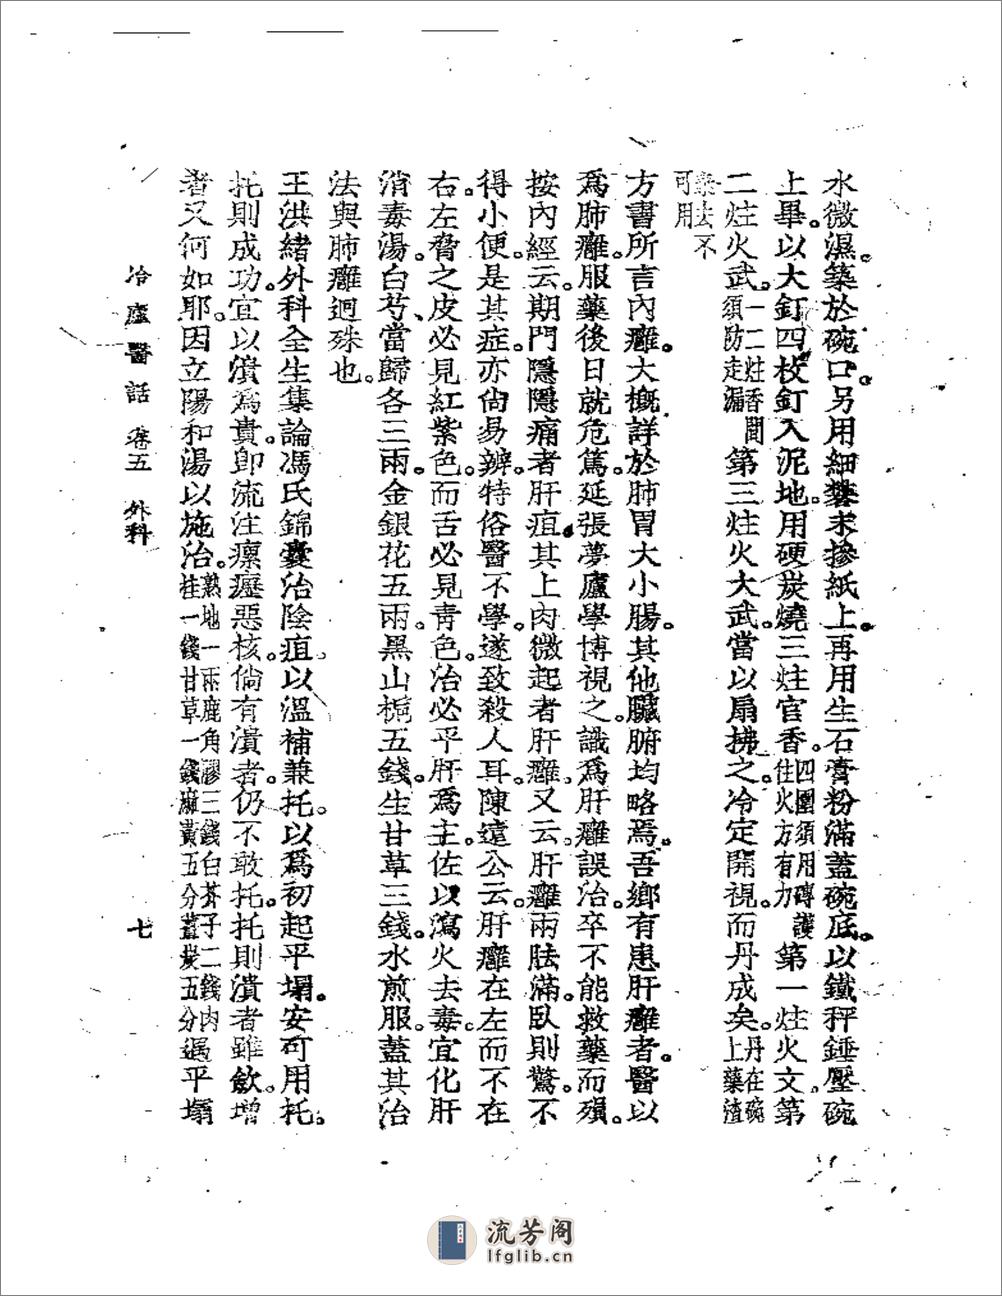 水微濕。築於碗口。另用細礬末摻紙上。再用生石膏粉滿蓋碗底。以鐵秤錘壓碗
上。畢以大釘四枚釘入泥地。用硬炭燒三炷官香。四圍須用磚護住火方有力第一炷火文。第
二炷火武。一二炷香間須防走漏第三炷火大武。當以扇拂之。冷定開視。而丹成矣。丹在碗上藥渣
藥去不可用
方書所言內癰。大概詳於肺胃大小腸。其他臟腑均略焉。吾鄉有患肝癰者。醫以
為肺癰。服藥後日就危篤。延張夢廬學博視之。識為肝癰誤治。卒不能救藥而殞。
按內經云。期門隱隱痛者肝疽。其上肉微起者肝癰。又云。肝癰兩胠滿。臥則驚。不
得小便。是其症。亦尙易辨。特俗醫不學。遂致殺人耳。陳遠公云。肝癰在左而不在
右。左脅之皮必見紅紫色。而舌必見靑色。治必平肝為主。佐以瀉火去毒。宜化肝
消毒湯。白芍、當歸各三兩。金銀花五兩。黑山梔五錢。生甘草三錢。水煎服。蓋其治
法與肺癰迥殊也。
王洪緒外科全生集論馮氏錦囊治陰疽以溫補兼托。以為初起平塌。安可用托。
托則成功。宜以潰為貴。卽流注瘰癧惡核。倘有潰者。仍不敢托。托則潰者雖斂。增
者又何如耶。因立陽和湯以施治。熟地一兩鹿角膠三錢白芥子二錢肉桂一錢甘草一錢麻黃五分薑炭五分遇平塌
冷廬醫話 卷五 外科 七
流芳阁
lfglib.cn